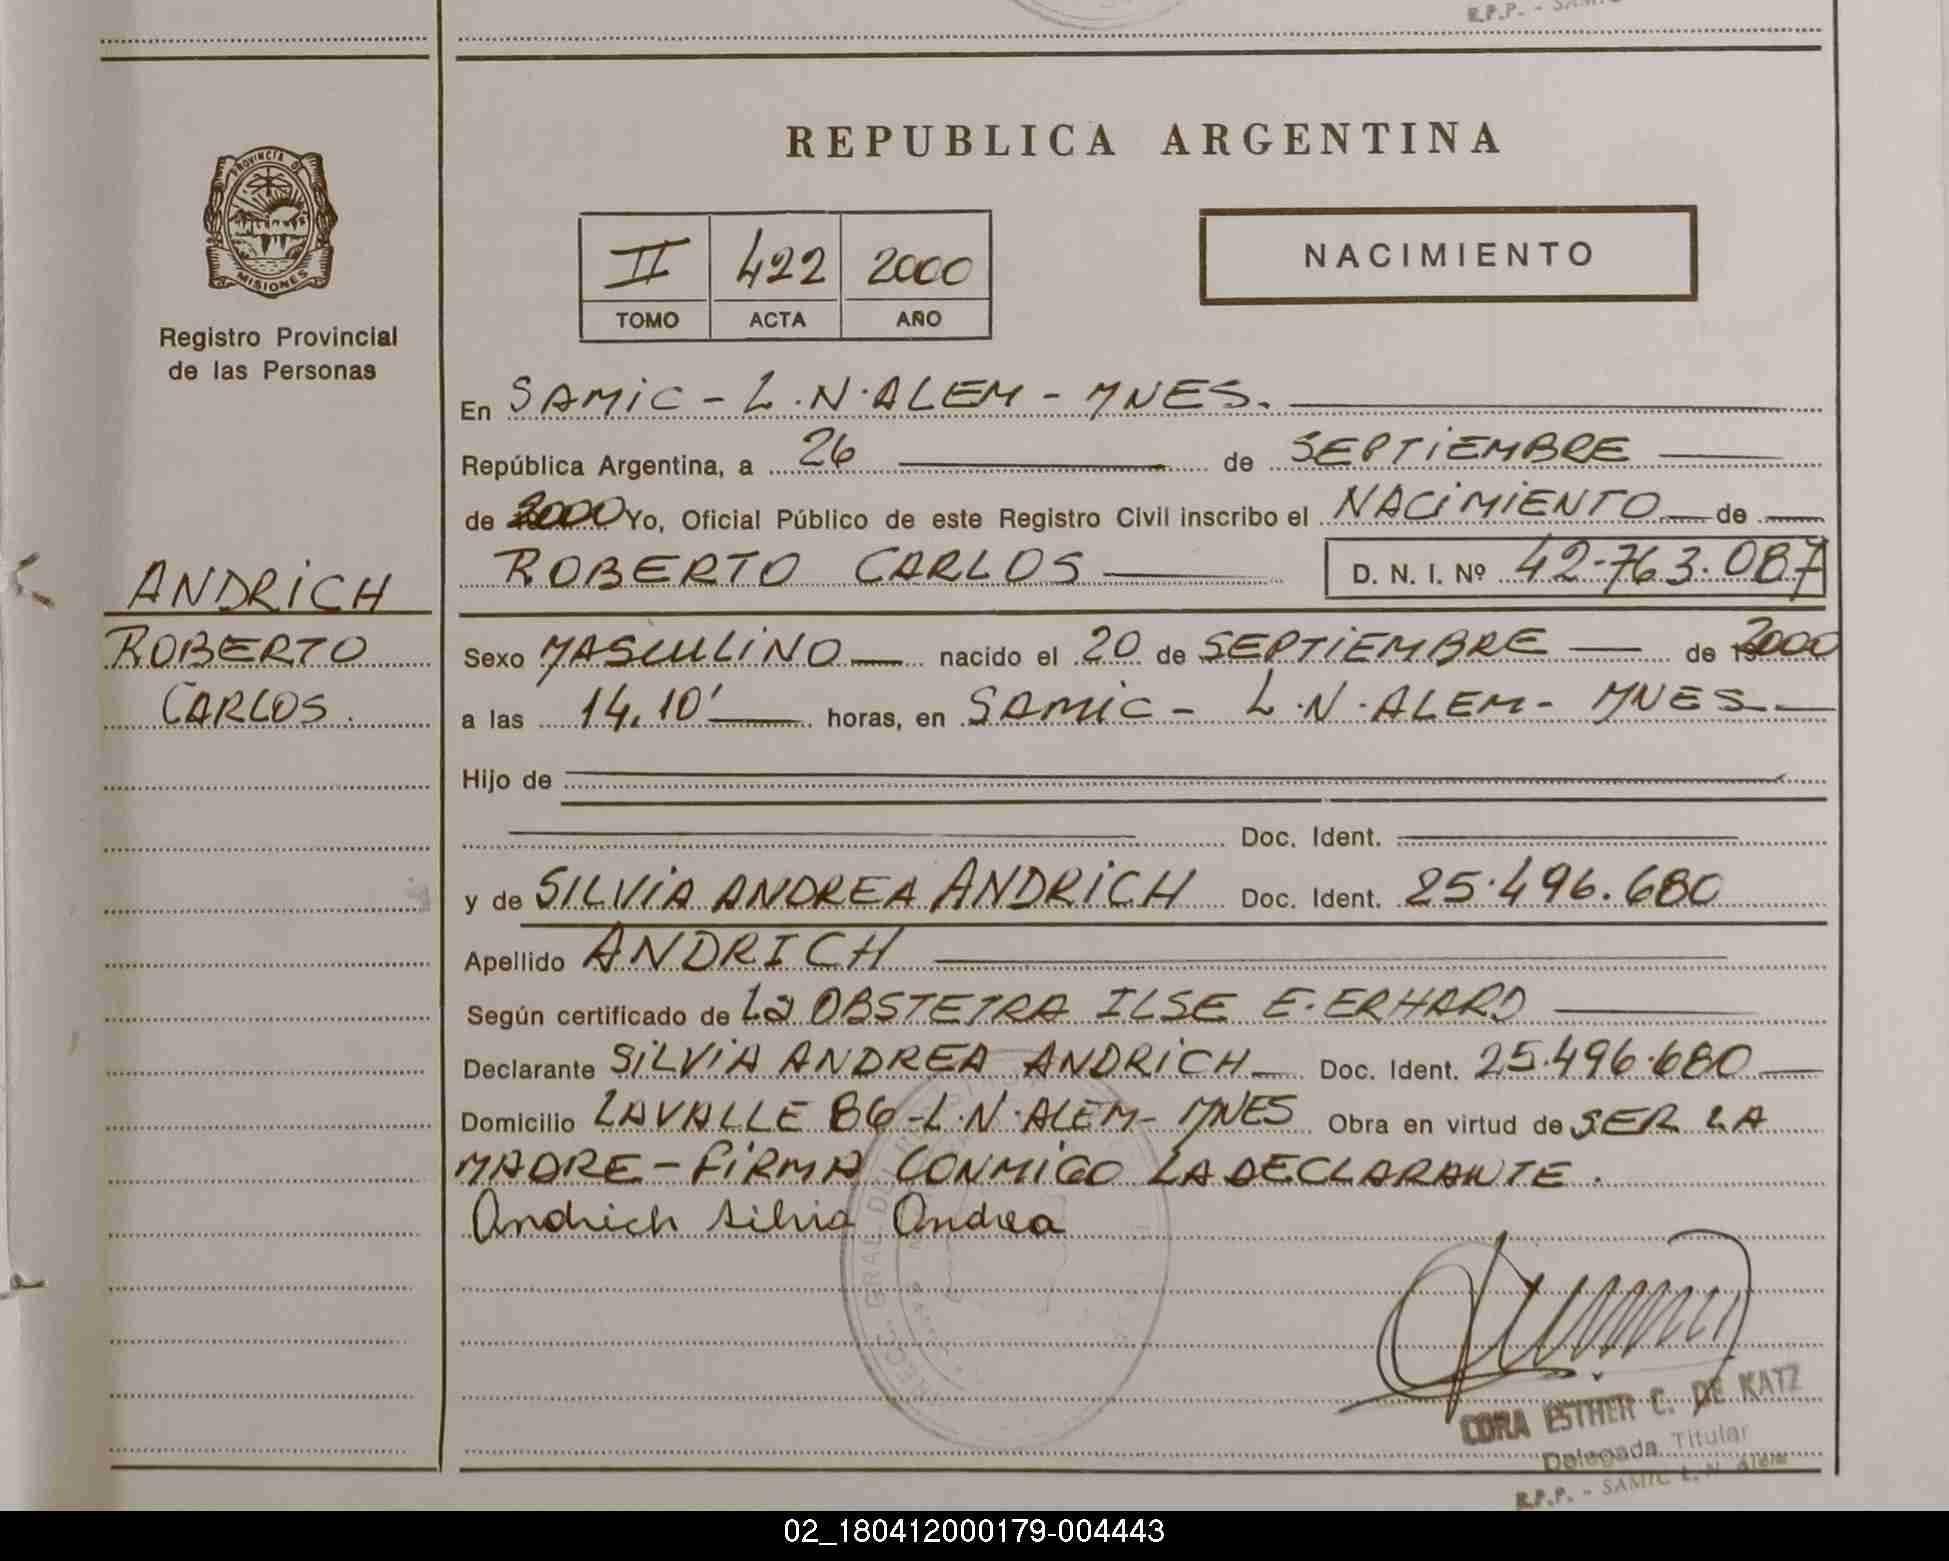 R.P.P. - SAMIC
REPUBLICA ARGENTINA
PROVINCIA DE
MISIONES
Registro Provincial
de las Personas
II 422 2000
TOMO ACTA AÑO
NACIMIENTO
En SAMIC - L.N.ALEM - MNES.
República Argentina, a 26 de SEPTIEMBRE
de 2000 Yo, Oficial Público de este Registro Civil inscribo el NACIMIENTO de
ROBERTO CARLOS D. N. I. Nº 42.763.087
ANDRICH
ROBERTO
CARLOS.
Sexo MASCULINO nacido el 20 de SEPTIEMBRE de 2000
a las 14,10' horas, en SAMIC - L.N.ALEM - MNES
Hijo de
Doc. Ident.
y de SILVIA ANDREA ANDRICH Doc. Ident. 25.496.680
Apellido ANDRICH
Según certificado de La OBSTETRA ILSE E. ERHARD
Declarante SILVIA ANDREA ANDRICH Doc. Ident. 25.496.680
Domicilio LAVALLE 86 - L.N.ALEM - MNES Obra en virtud de SER LA
MADRE - FIRMA CONMIGO LA DECLARANTE.
Andrich Silvia Andrea
CORA ESTHER C. DE KATZ
Delegada Titular
R.P.P. - SAMIC L. N. Alem
02_180412000179-004443